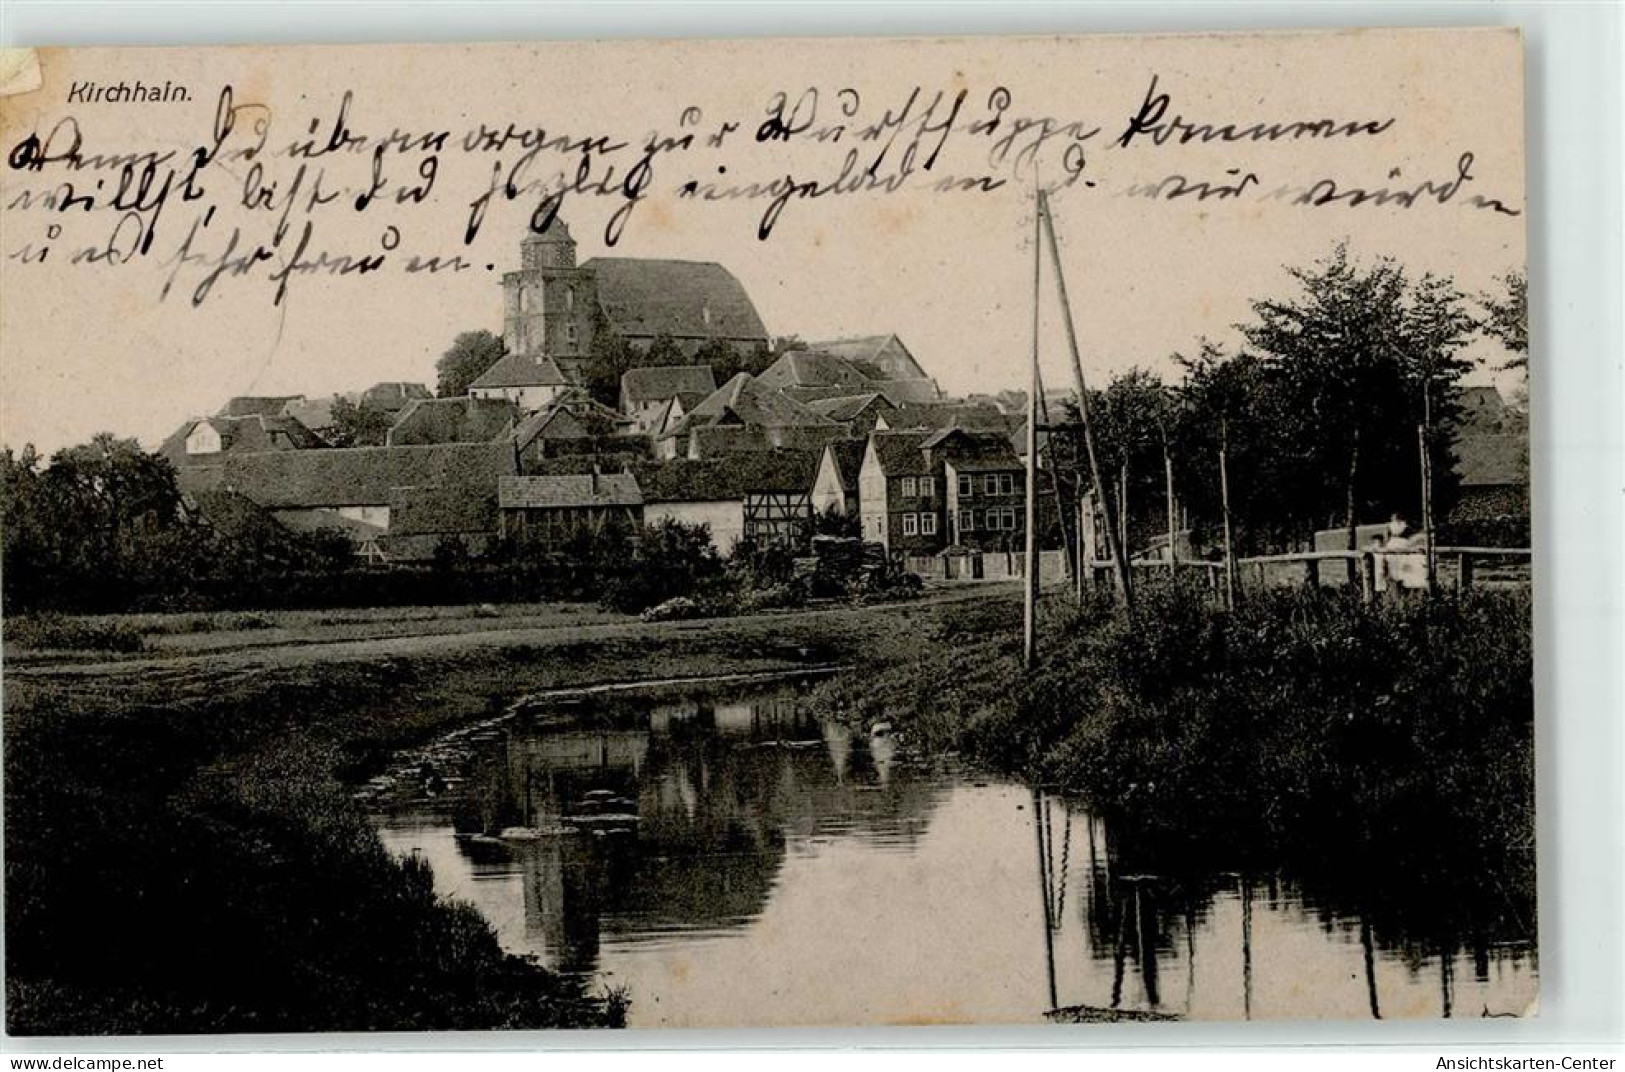 Kirchhain.
Wenn Du übermorgen zur Wurstsuppe kommen
willst, bist Du herzlich eingeladen u. wir würden
uns sehr freuen.
delcampe.net
Ansichtskarten-Center